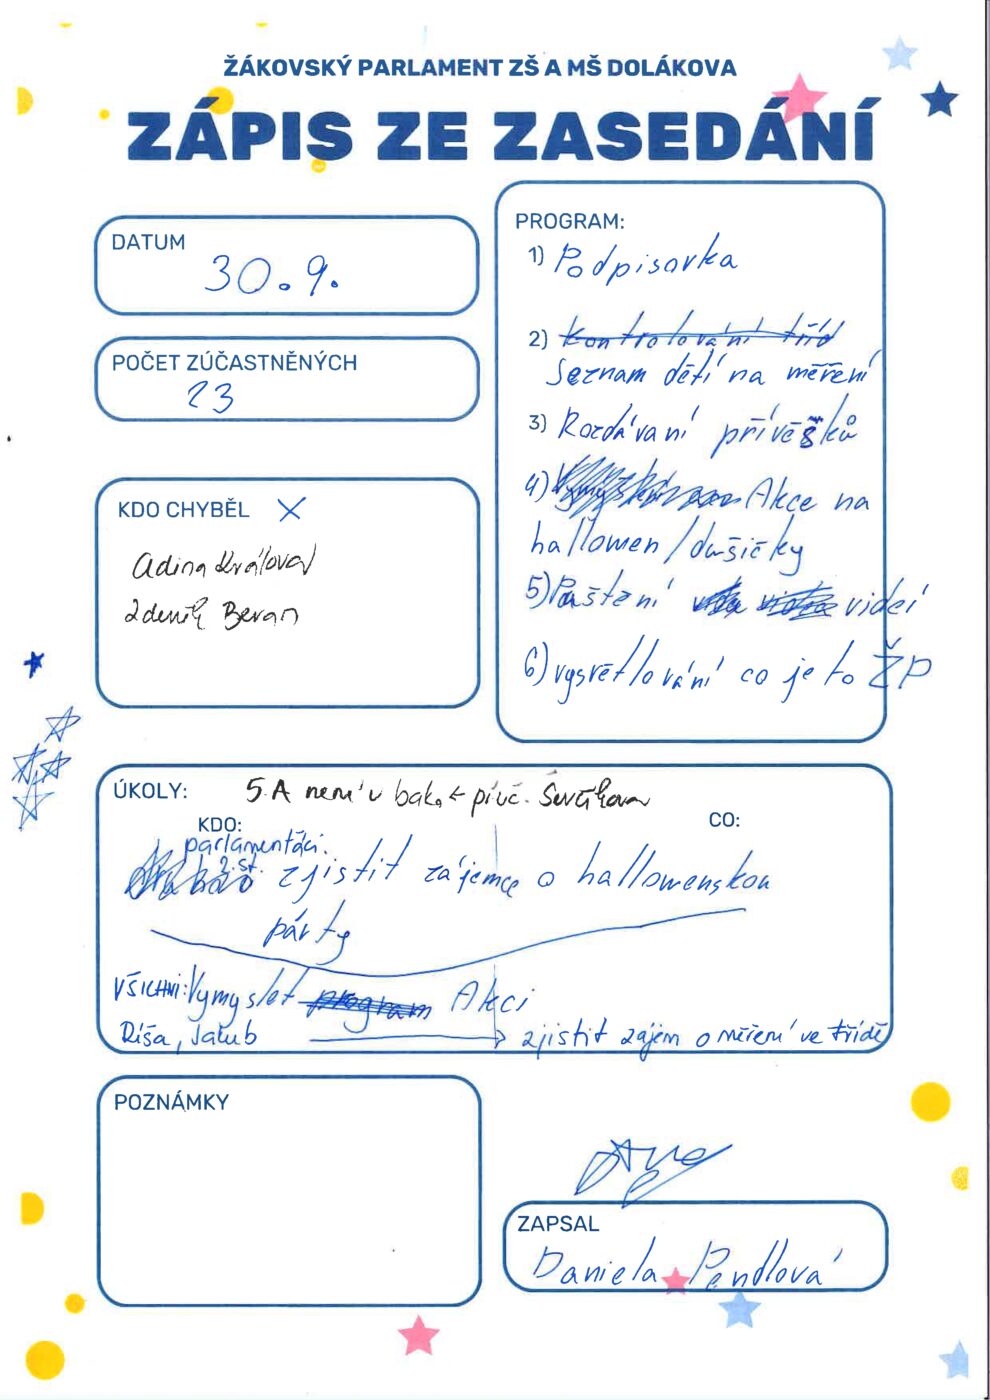 ŽÁKOVSKÝ PARLAMENT ZŠ A MŠ DOLÁKOVA
ZÁPIS ZE ZASEDÁNÍ
DATUM
30.9.
POČET ZÚČASTNĚNÝCH
23
KDO CHYBĚL X
Adina Králová
Zdeněk Beran
PROGRAM:
1) Podpisovka
2) Kontrolování tříd
Seznam dětí na měření
3) Rozdávaní přívěšků
4) Akce na
hallowen/dušičky
5) Pouštění videí
6) vysvětlování co je to ŽP
ÚKOLY: 5.A není v bak. ← p. uč.
KDO: CO:
parlamentáci.
2.st. zjistit zájemce o hallowenskou
párty
VŠICHNI: Vymyslet program Akci
Ríša, Jakub → zjistit zájem o měření ve třídě
POZNÁMKY
ZAPSAL
Daniela Pendlová